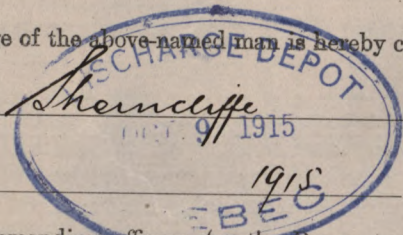 e of the above-named man is hereby c
DISCHARGE DEPOT
Shorncliffe
OCT 9 1915
1915
EBEC